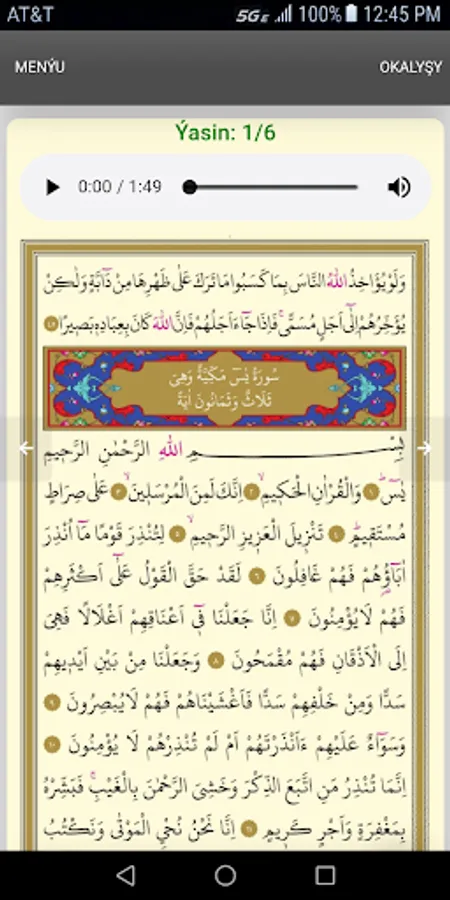 AT&T 5G E 100% 12:45 PM
MENÝU OKALYŞY
Ýasin: 1/6
0:00 / 1:49
وَلَوْ يُؤَاخِذُ اللّٰهُ النَّاسَ بِمَا كَسَبُوا مَا تَرَكَ عَلٰى ظَهْرِهَا مِنْ دَٓابَّةٍ وَلٰكِنْ
يُؤَخِّرُهُمْ اِلٰٓى اَجَلٍ مُسَمًّىۚ فَاِذَا جَٓاءَ اَجَلُهُمْ فَاِنَّ اللّٰهَ كَانَ بِعِبَادِه۪ بَص۪يرًا ٤٥
سُورَةُ يٰسٓ مَكِّيَّةٌ وَهِيَ
ثَلَاثٌ وَثَمَانُونَ اٰيَةً
بِسْمِ اللّٰهِ الرَّحْمٰنِ الرَّح۪يمِ
يٰسٓۜ ١ وَالْقُرْاٰنِ الْحَك۪يمِۙ ٢ اِنَّكَ لَمِنَ الْمُرْسَل۪ينَۙ ٣ عَلٰى صِرَاطٍ
مُسْتَق۪يمٍۜ ٤ تَنْز۪يلَ الْعَز۪يزِ الرَّح۪يمِۙ ٥ لِتُنْذِرَ قَوْمًا مَٓا اُنْذِرَ
اٰبَٓاؤُ۬هُمْ فَهُمْ غَافِلُونَ ٦ لَقَدْ حَقَّ الْقَوْلُ عَلٰٓى اَكْثَرِهِمْ
فَهُمْ لَا يُؤْمِنُونَ ٧ اِنَّا جَعَلْنَا ف۪ٓي اَعْنَاقِهِمْ اَغْلَالًا فَهِيَ
اِلَى الْاَذْقَانِ فَهُمْ مُقْمَحُونَ ٨ وَجَعَلْنَا مِنْ بَيْنِ اَيْد۪يهِمْ
سَدًّا وَمِنْ خَلْفِهِمْ سَدًّا فَاَغْشَيْنَاهُمْ فَهُمْ لَا يُبْصِرُونَ ٩
وَسَوَٓاءٌ عَلَيْهِمْ ءَاَنْذَرْتَهُمْ اَمْ لَمْ تُنْذِرْهُمْ لَا يُؤْمِنُونَ ١٠
اِنَّمَا تُنْذِرُ مَنِ اتَّبَعَ الذِّكْرَ وَخَشِيَ الرَّحْمٰنَ بِالْغَيْبِۚ فَبَشِّرْهُ
بِمَغْفِرَةٍ وَاَجْرٍ كَر۪يمٍ ١١ اِنَّا نَحْنُ نُحْيِ الْمَوْتٰى وَنَكْتُبُ